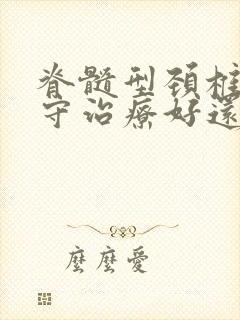 脊髓型颈
守治療好還
麼麼愛